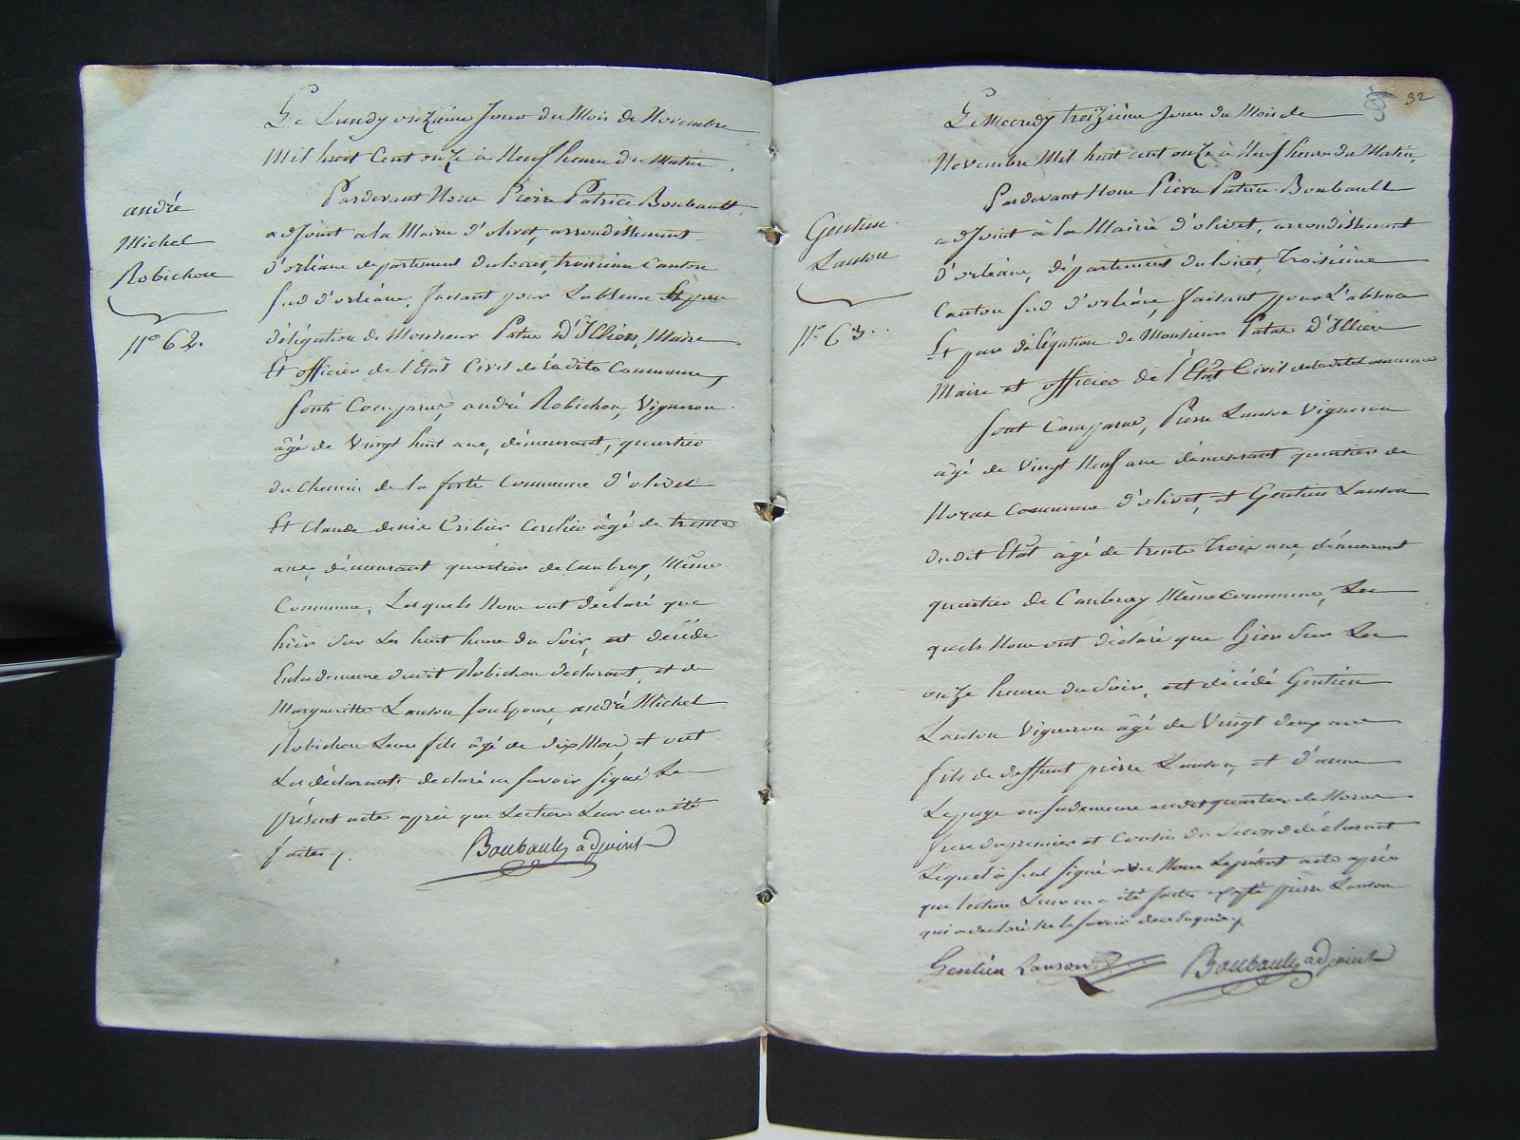 andré
Michel
Robichon
n.° 62.
Le Lundy onzième Jour du Mois de Novembre
Mil huit Cent onze à Neuf heures du Matin,
Pardevant Nous Pierre Patrice Boubault
adjoint à la Mairie d'olivet, arrondissement
d'orléans departement du loiret, troisième Canton
Sud d'orléans, faisant pour L'absence Et par
délégation de Monsieur Patas D'Illiers, Maire
Et officier de l'Etât Civil de ladite Commune,
Sont Comparus, andré Robichon, Vigneron
âgé de Vingt huit ans, démeurant, quartier
du Chemin de la ferté Commune d'olivet
Et Claude denis Cribier Cerclier âgé de trente
ans, démeurant quartier de Caubray, Même
Commune, Lesquels Nous ont déclaré que
hier Sur Les huit heures du Soir, est décédé
En la demeure dudit Robichon déclarant, et de
Margueritte Lanson Son Epouse, andré Michel
Robichon Leur fils âgé de dix Mois, et ont
Les déclarants declaré ne Savoir Signé Le
présent acte après que Lecture Leur en a été
faite ./.
Boubault adjoint
32
Gentien
Lanson
n.° 63.
Le Mecredy treizième Jour du Mois de
Novembre Mil huit cent onze à Neuf heures du Matin,
Pardevant Nous Pierre Patrice Boubault
adjoint à la Mairie d'olivet, arrondissement
d'orléans, département du loiret, Troisième
Canton Sud d'orléans, faisant pour L'absence
Et par délégation de Monsieur Patas D'Illiers
Maire et officier de l'Etât Civil de ladite Commune
Sont Comparus, Pierre Lanson Vigneron
âgé de Vingt Neuf ans démeurant quartier de
Noras Commune d'olivet, et Gentien Lanson
dudit Etât âgé de trente Trois ans, démeurant
quartier de Caubray Même Commune, Les
quels Nous ont déclaré que hier Sur Les
onze heures du Soir, est décédé Gentien
Lanson Vigneron âgé de Vingt deux ans
fils de deffunt pierre Lanson, et d'anne
Lepage en Sa demeure audit quartier de Noras
frère du premier et Cousin du Second déclarant
Lequel à Seul Signé avec Nous Le présent acte après
que lecture Leur en a été faite excepté pierre Lanson
qui a declaré ne le Savoir de ce requis ./.
Gentien Lanson
Boubault adjoint